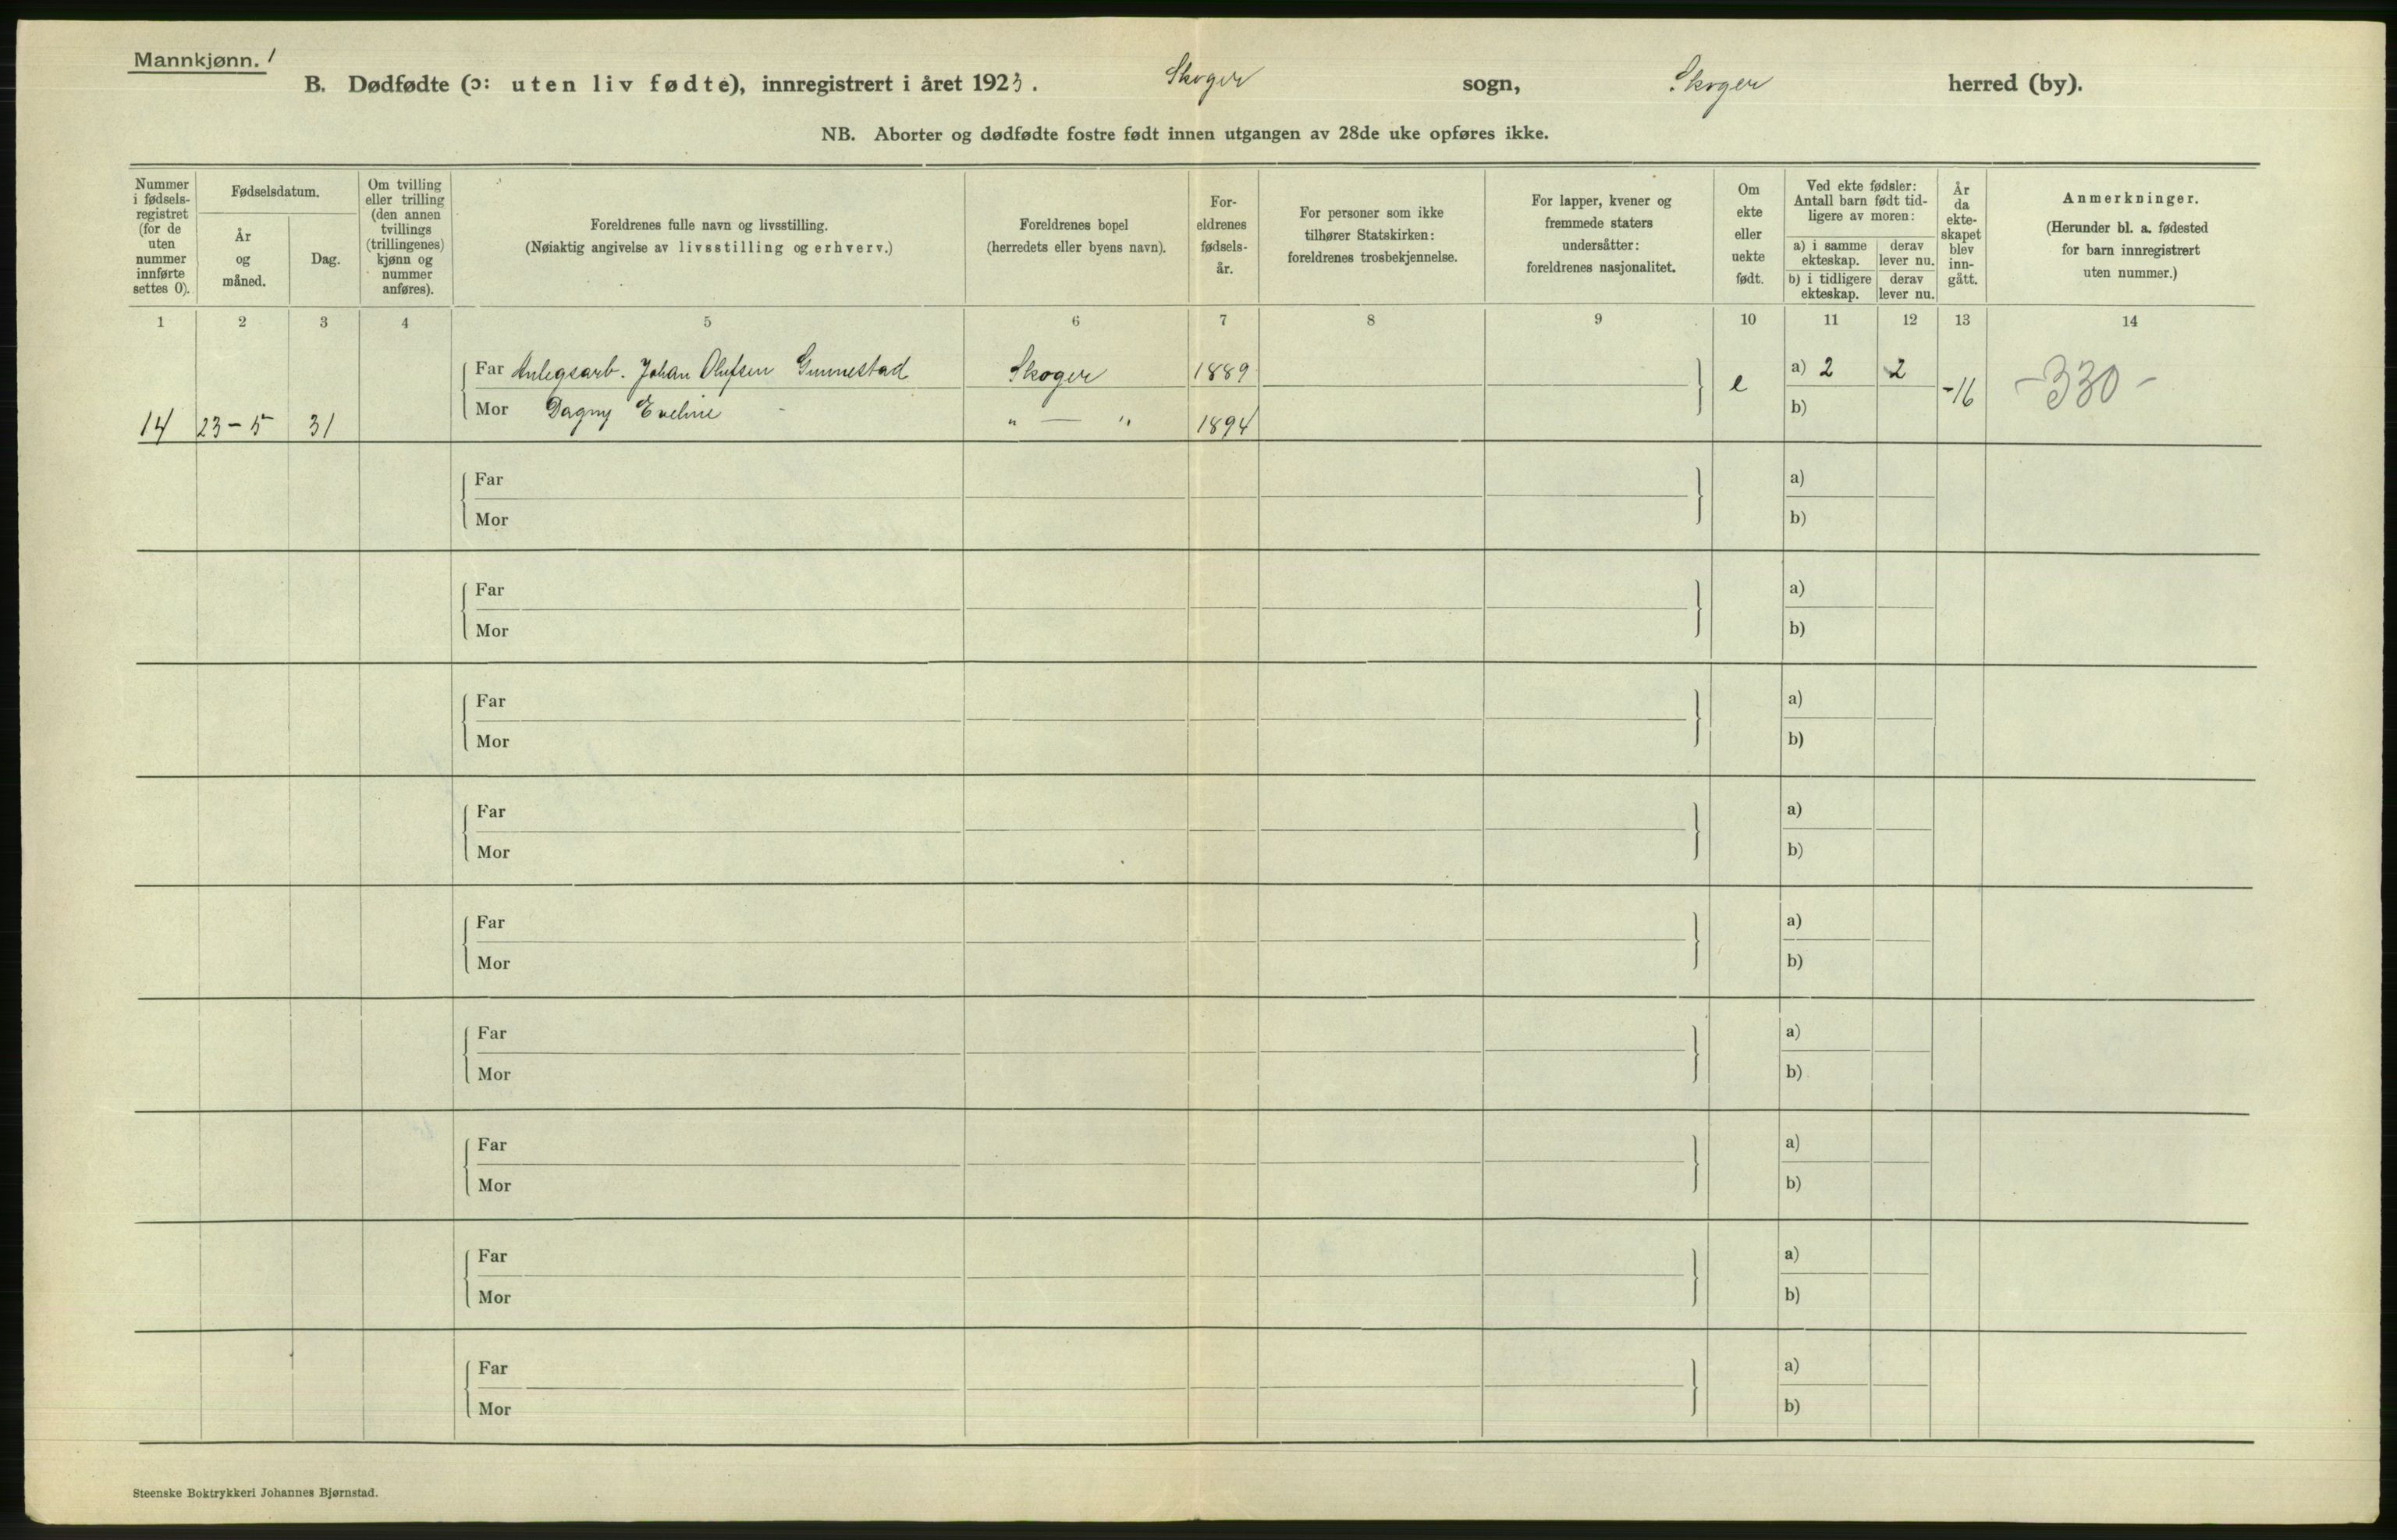 Mannkjønn. 1
B. Dødfødte (ɔ: uten liv fødte), innregistrert i året 1923. Skoger sogn, Skoger herred (by).
NB. Aborter og dødfødte fostre født innen utgangen av 28de uke opføres ikke.
Nummer i fødsels-registret (for de uten nummer innførte settes 0).
Fødselsdatum.
År og måned.
Dag.
Om tvilling eller trilling (den annen tvillings (trillingenes) kjønn og nummer anføres).
Foreldrenes fulle navn og livsstilling.
(Nøiaktig angivelse av livsstilling og erhverv.)
Foreldrenes bopel
(herredets eller byens navn).
For-eldrenes fødsels-år.
For personer som ikke tilhører Statskirken: foreldrenes trosbekjennelse.
For lapper, kvener og fremmede staters undersåtter: foreldrenes nasjonalitet.
Om ekte eller uekte født.
Ved ekte fødsler: Antall barn født tid-ligere av moren:
a) i samme ekteskap. derav lever nu.
b) i tidligere ekteskap. derav lever nu.
År da ekte-skapet blev inn-gått.
Anmerkninger.
(Herunder bl. a. fødested for barn innregistrert uten nummer.)
1 2 3 4 5 6 7 8 9 10 11 12 13 14
Far Anlegsarb. Johan Olufsen Gunnestad Skoger 1889 e a) 2 2 -16 -330-
14 23-5 31 Mor Dagny Eveline - " — " 1894 b)
Far a)
Mor b)
Far a)
Mor b)
Far a)
Mor b)
Far a)
Mor b)
Far a)
Mor b)
Far a)
Mor b)
Far a)
Mor b)
Far a)
Mor b)
Far a)
Mor b)
Steenske Boktrykkeri Johannes Bjørnstad.